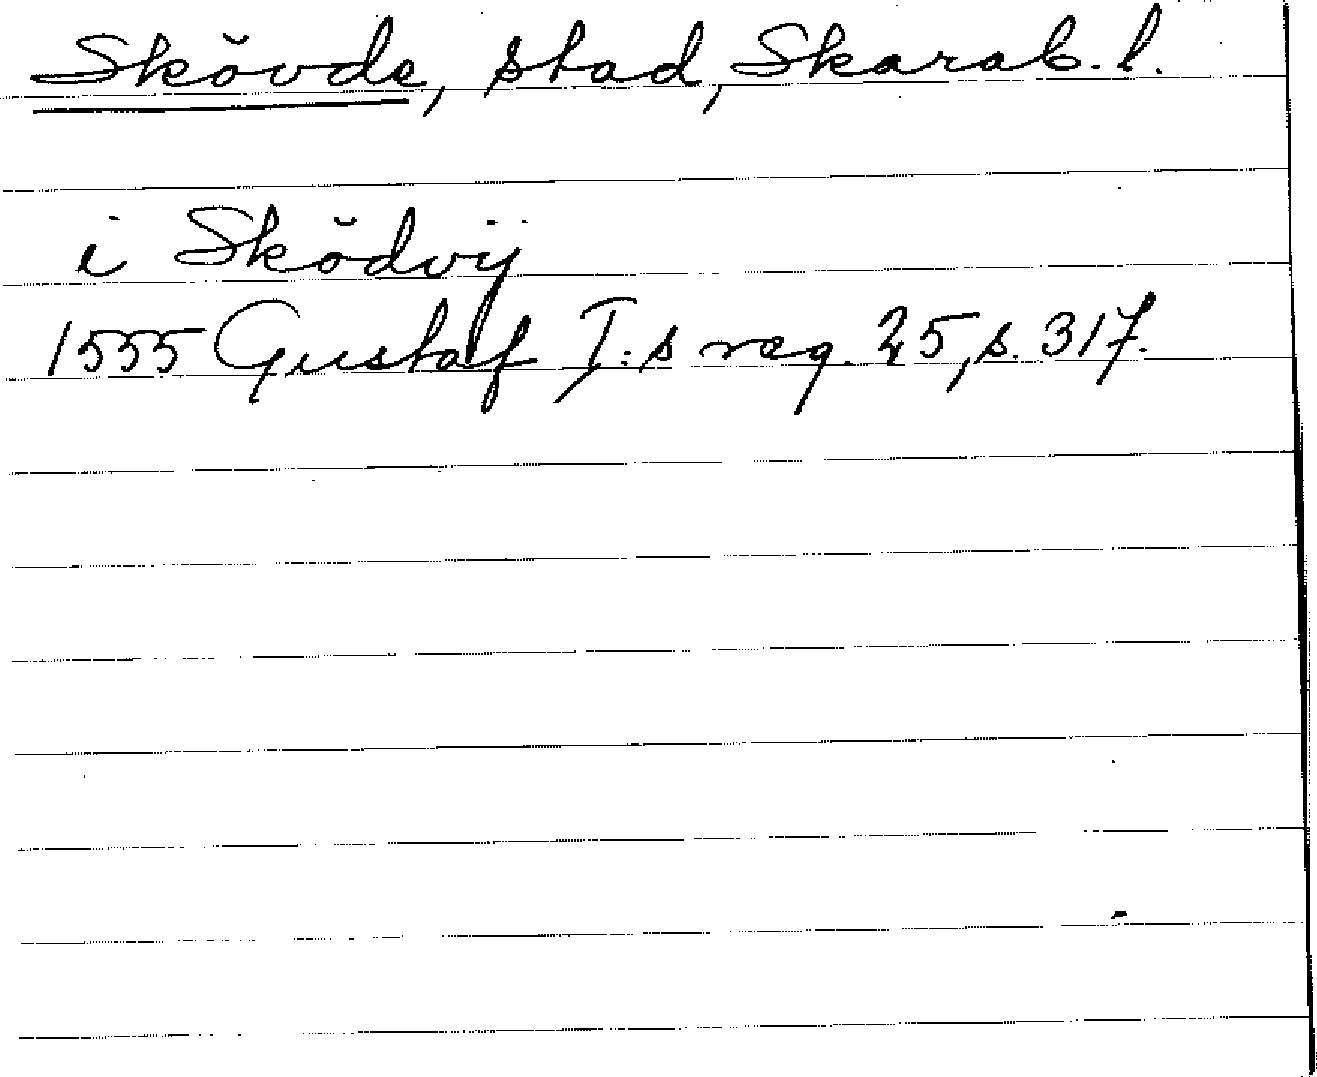 Skövde, stad, Skarab. l.
i Sködvij
1555 Gustaf I:s reg. 25, s. 317.